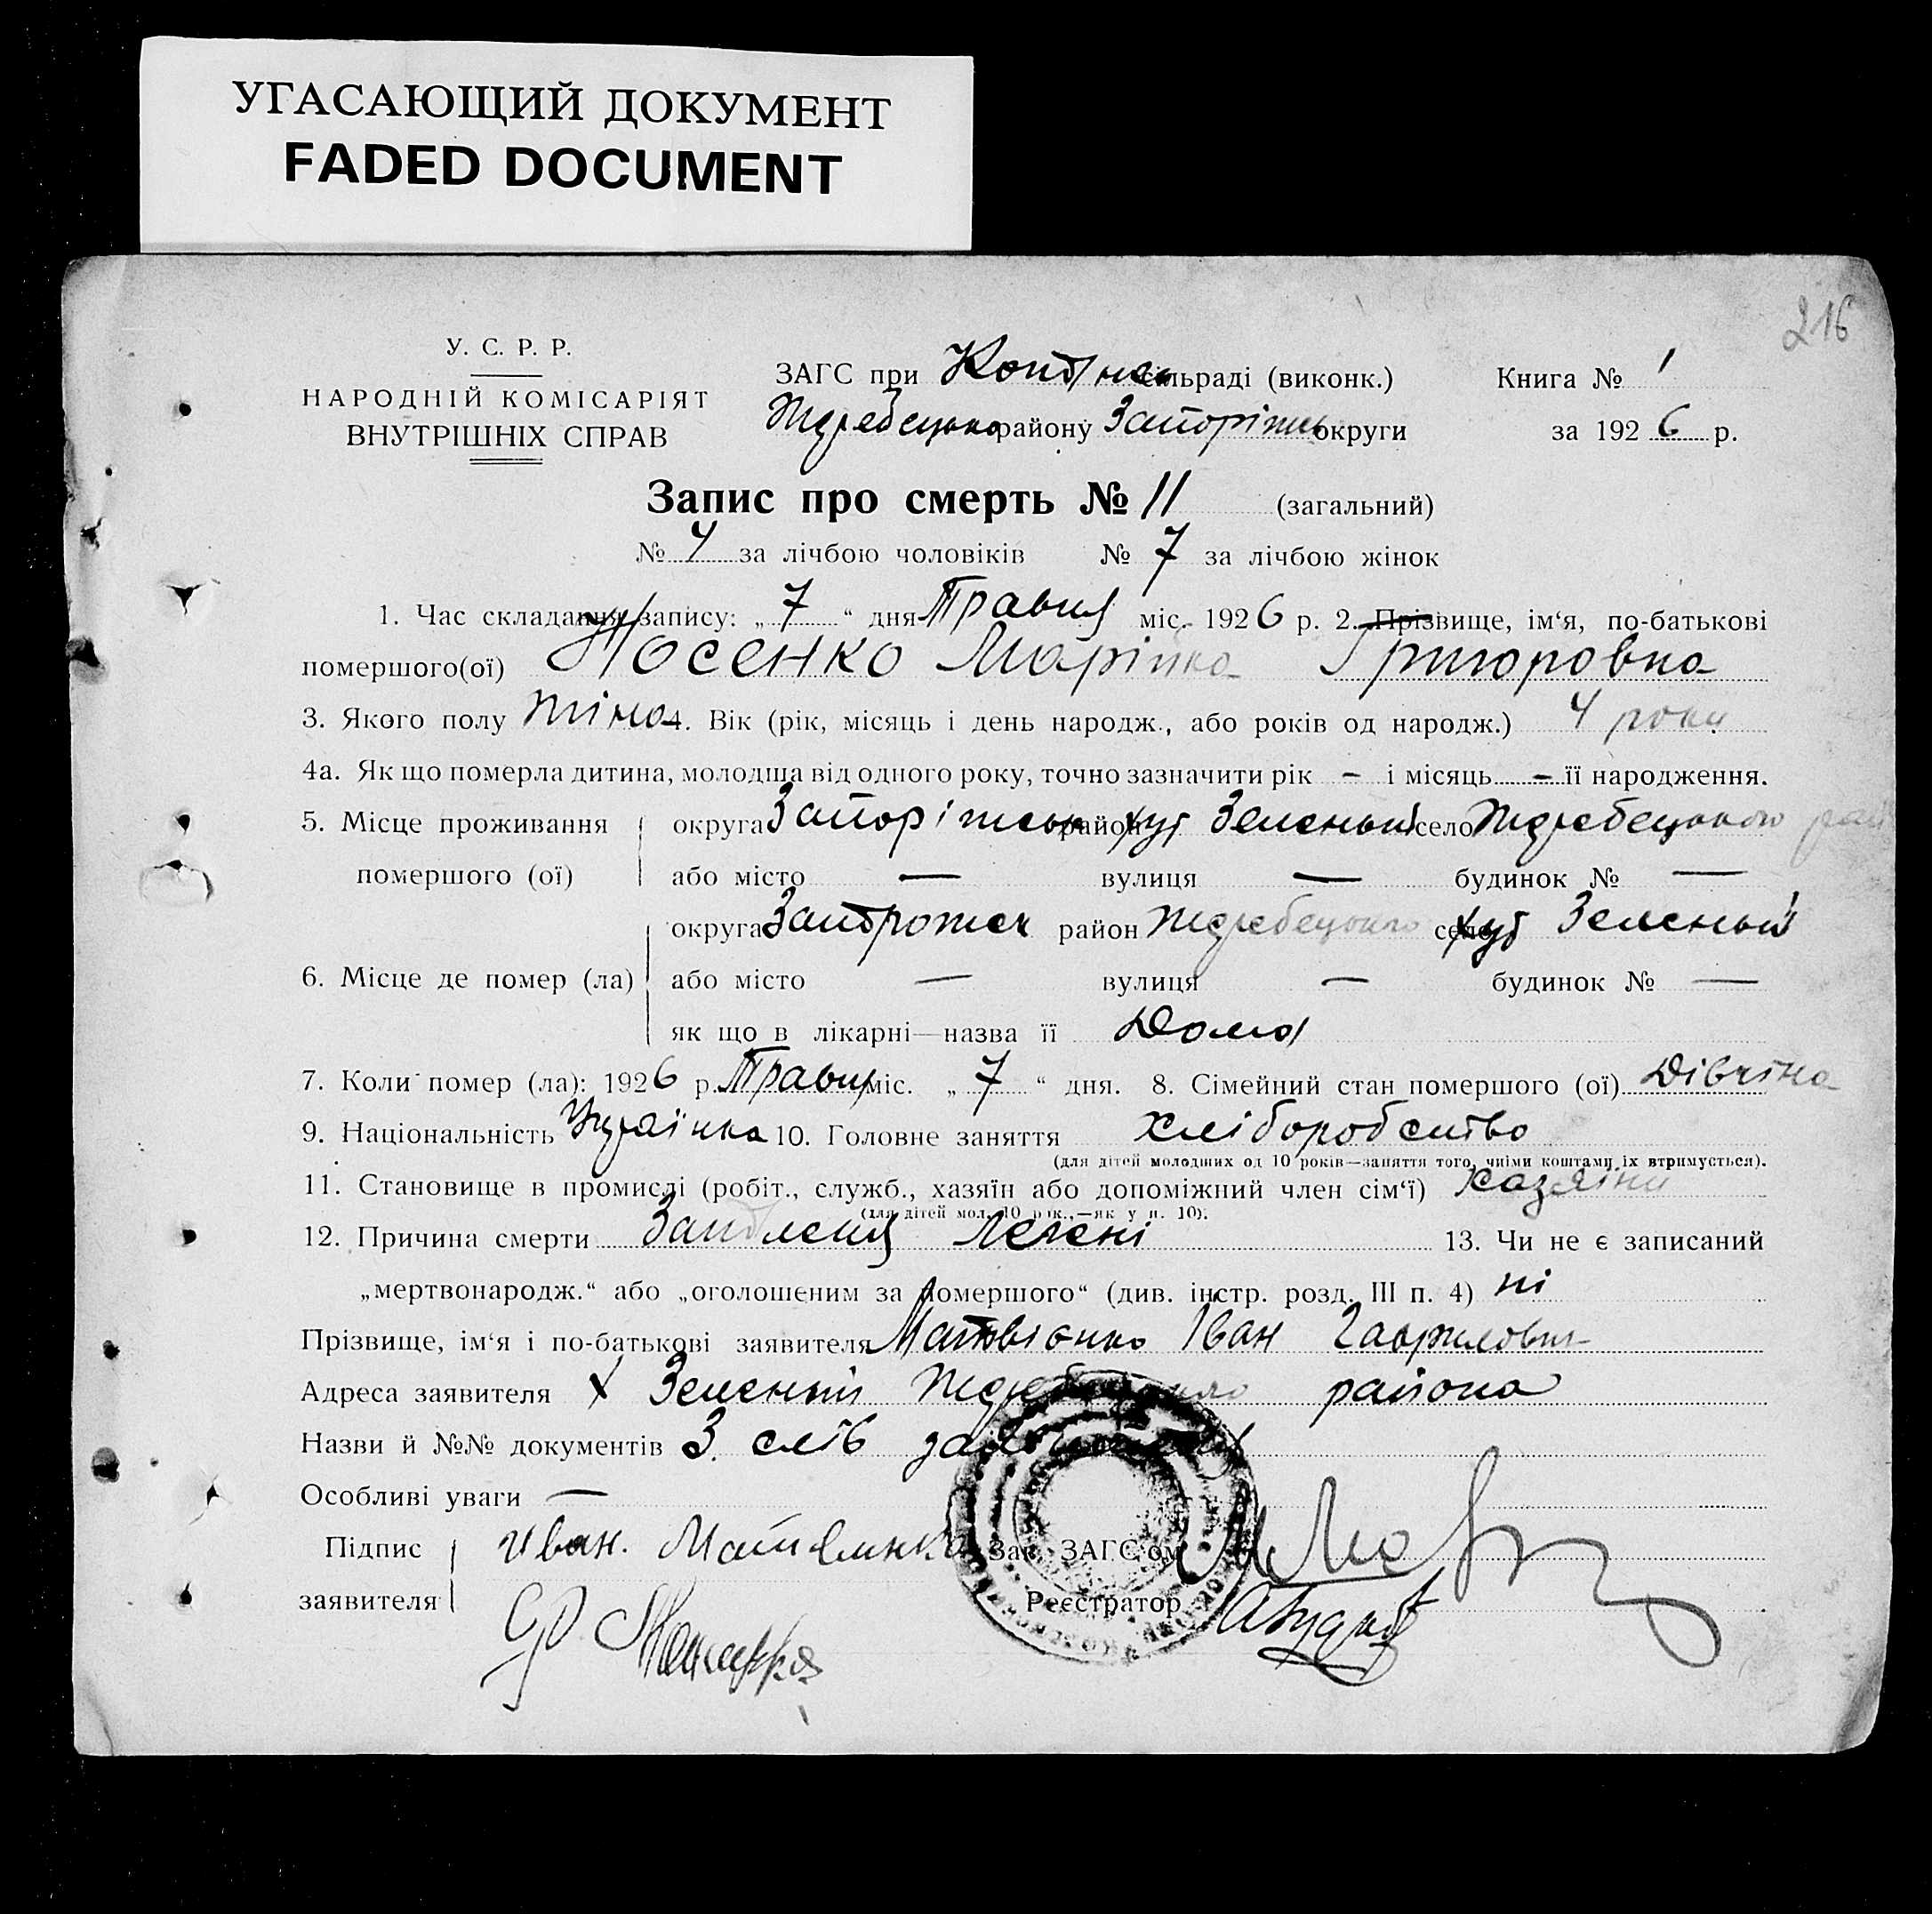 УГАСАЮЩИЙ ДОКУМЕНТ
FADED DOCUMENT
216
У. С. Р. Р.
НАРОДНІЙ КОМІСАРІЯТ
ВНУТРІШНІХ СПРАВ
ЗАГС при сільраді (виконк.) Книга № 1
Жеребецько району Запоріжськ округи за 1926 р.
Запис про смерть № 11 (загальний)
№ 4 за лічбою чоловіків № 7 за лічбою жінок
1. Час складання запису: „ 7 “ дня Травня міс. 1926 р. 2. Прізвище, ім'я, по-батькові
помершого(ої) Носенко Марійка Григоровна
3. Якого полу жіноч 4. Вік (рік, місяць і день народж., або років од народж.) 4 роки
4а. Як що померла дитина, молодша від одного року, точно зазначити рік – і місяць – її народження.
5. Місце проживання округа Запоріжськ район хут Зеленый село Жеребецького рай
помершого (ої) або місто — вулиця — будинок № —
округа Запорожск район Жеребецького село хут Зеленый
6. Місце де помер (ла) або місто — вулиця — будинок № —
як що в лікарні—назва її Дома
7. Коли помер (ла): 1926 р. Травня міс. „ 7 “ дня. 8. Сімейний стан помершого (ої) Дівчіна
9. Національність Українка 10. Головне заняття хліборобство
(для дітей молодших од 10 років—заняття того, чиїми коштами їх втримується).
11. Становище в промислі (робіт., служб., хазяїн або допоміжний член сім'ї) Хазяїни
(для дітей мол. 10 рок.,—як у п. 10).
12. Причина смерти Запаленя Легені 13. Чи не є записаний
„мертвонародж.“ або „оголошеним за помершого“ (див. інстр. розд. III п. 4) ні
Прізвище, ім'я і по-батькові заявителя Матвієнко Іван Гаврилович
Адреса заявителя х Зелений Жеребецького района
Назви й №№ документів З слів заявителя
Особливі уваги —
Підпис Иван. Зав. ЗАГС'ом
заявителя Реєстратор